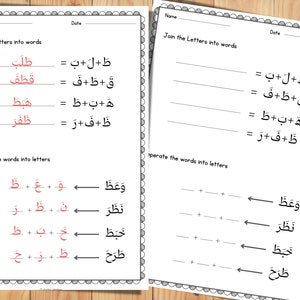 Date
etters into words
طَلَبَ = طَ+لَ+بَ
قَطَفَ = قَ+طَ+فَ
هَبَطَ = هَ+بَ+طَ
ظَفَرَ = ظَ+فَ+رَ
e words into letters
وَعَظَ ← وَ + عَ + ظَ
نَظَرَ ← نَ + ظَ + رَ
خَبَطَ ← خَ + بَ + طَ
طَرَحَ ← طَ + رَ + حَ
Name Date
Join the Letters into words
= طَ+لَ+بَ
= قَ+طَ+فَ
= هَ+بَ+طَ
= ظَ+فَ+رَ
eperate the words into letters
وَعَظَ ← + +
نَظَرَ ← + +
خَبَطَ ← + +
طَرَحَ ← + +